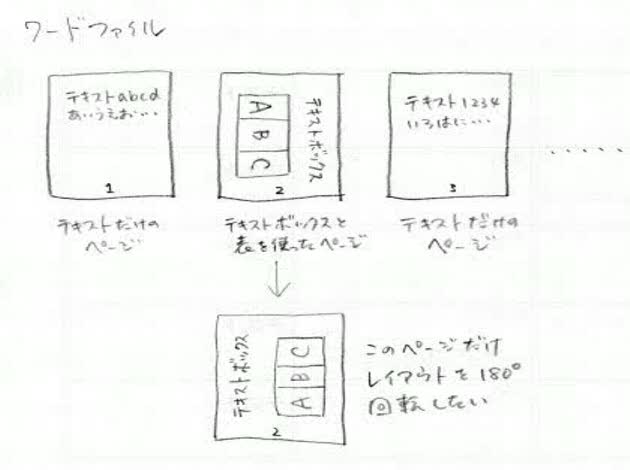 ワードファイル
テキストabcd
あいうえお・・・
1
テキストだけの
ページ
テキストボックス
A
B
C
2
テキストボックスと
表を使ったページ
テキスト1234
いろはに・・・
3
テキストだけの
ページ
・・・・・
テキストボックス
A
B
C
2
このページだけ
レイアウトを180°
回転したい